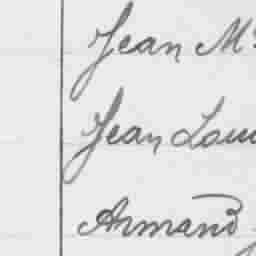 Jean Mc
Jean Loui
Armand